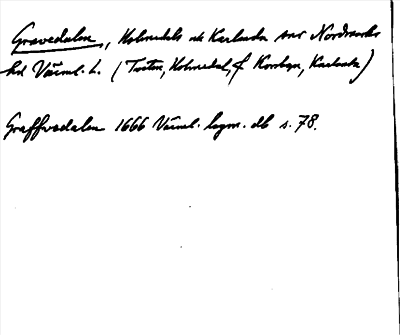 Gravedalen, Holmedals o Karlanda snr Nordmarks
hd Värml. l. (Trosten, Holmedal, f Korsbyn, Karlanda)
Graffwedalen 1666 Värml. lagm. db s. 78.